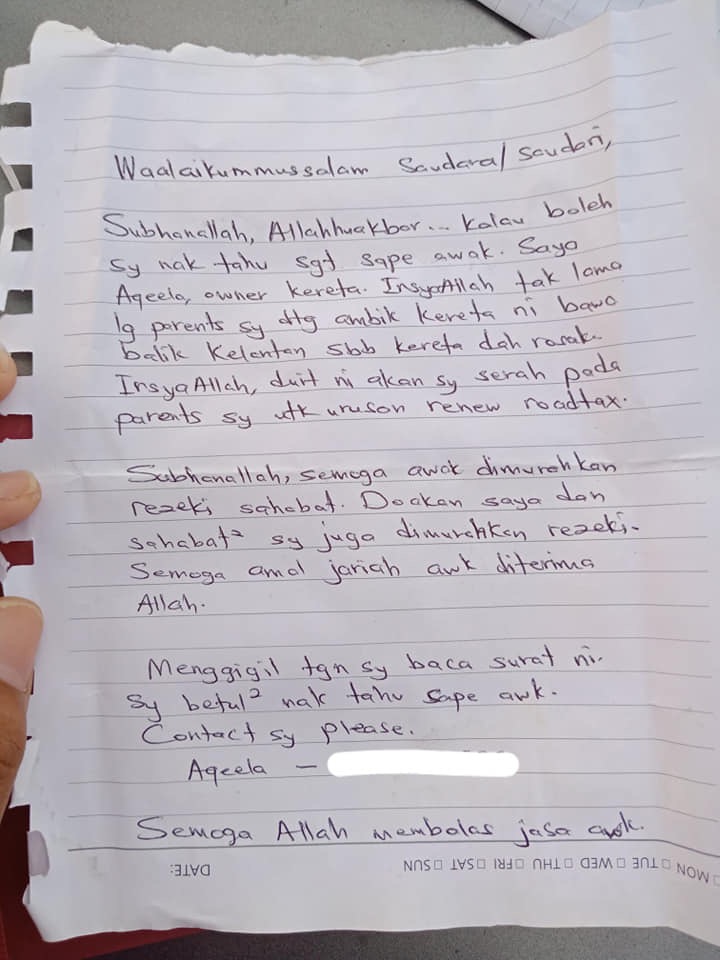 Waalaikummussalam Saudara/Saudari,
Subhanallah, Allahhuakbar... Kalau boleh
sy nak tahu sgt sape awak. Saya
Aqeela, owner kereta. InsyaAllah tak lama
lg parents sy dtg ambik kereta ni bawa
balik Kelantan sbb kereta dah rosak.
InsyaAllah, duit ni akan sy serah pada
parents sy utk uruskan renew roadtax.
Subhanallah, semoga awak dimurahkan
rezeki sahabat. Doakan saya dan
sahabat² sy juga dimurahkan rezeki.
Semoga amal jariah awk diterima
Allah.
Menggigil tgn sy baca surat ni.
Sy betul² nak tahu sape awk.
Contact sy please.
Aqeela -
Semoga Allah membalas jasa awk.
DATE: □ MON □ TUE □ WED □ THU □ FRI □ SAT □ SUN